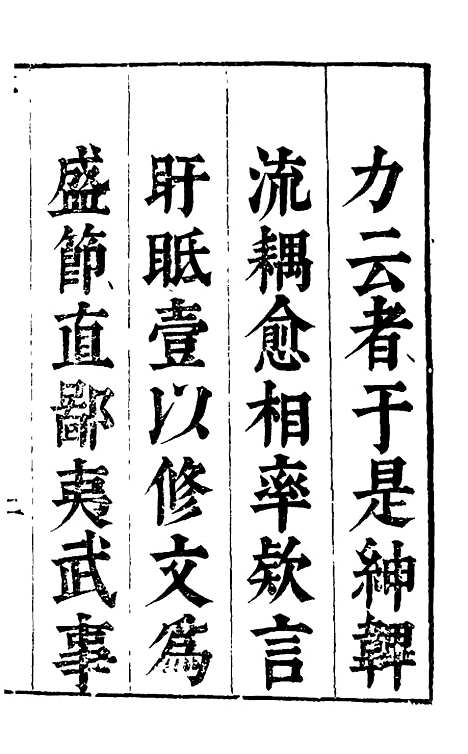 力云者于是紳韠
流耦愈相率欸言
盱眂壹以修文為
盛節直鄙夷武事
二